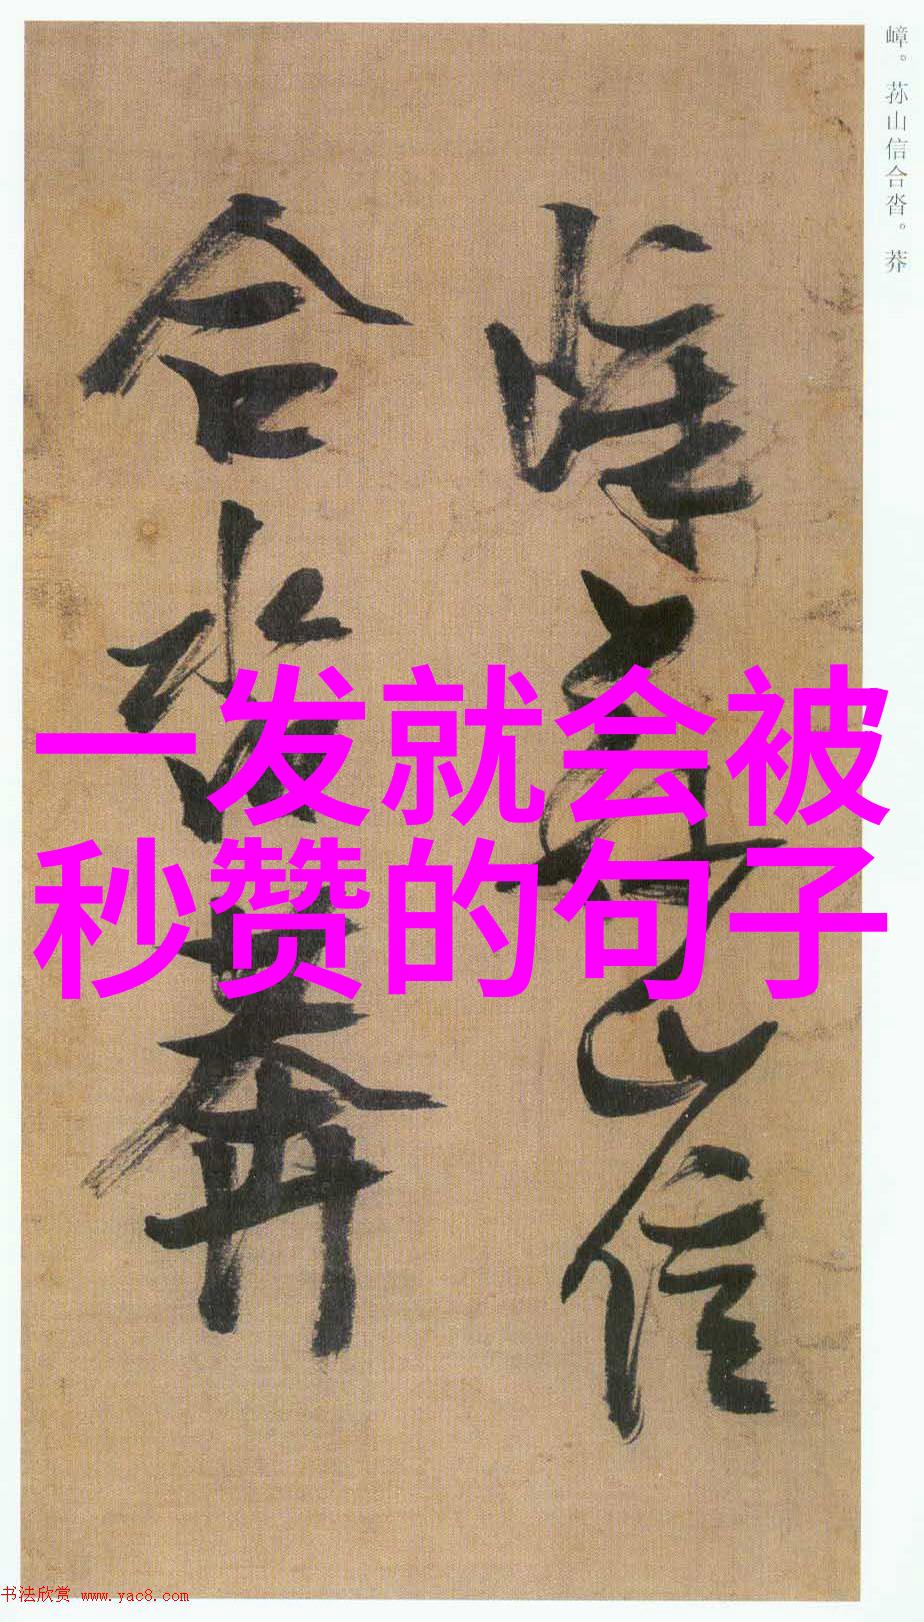 嶂。荪山信合沓。莽
嶂荪山信
合沓莽
一发就会被
秒赞的句子
书法欣赏 www.yac8.com